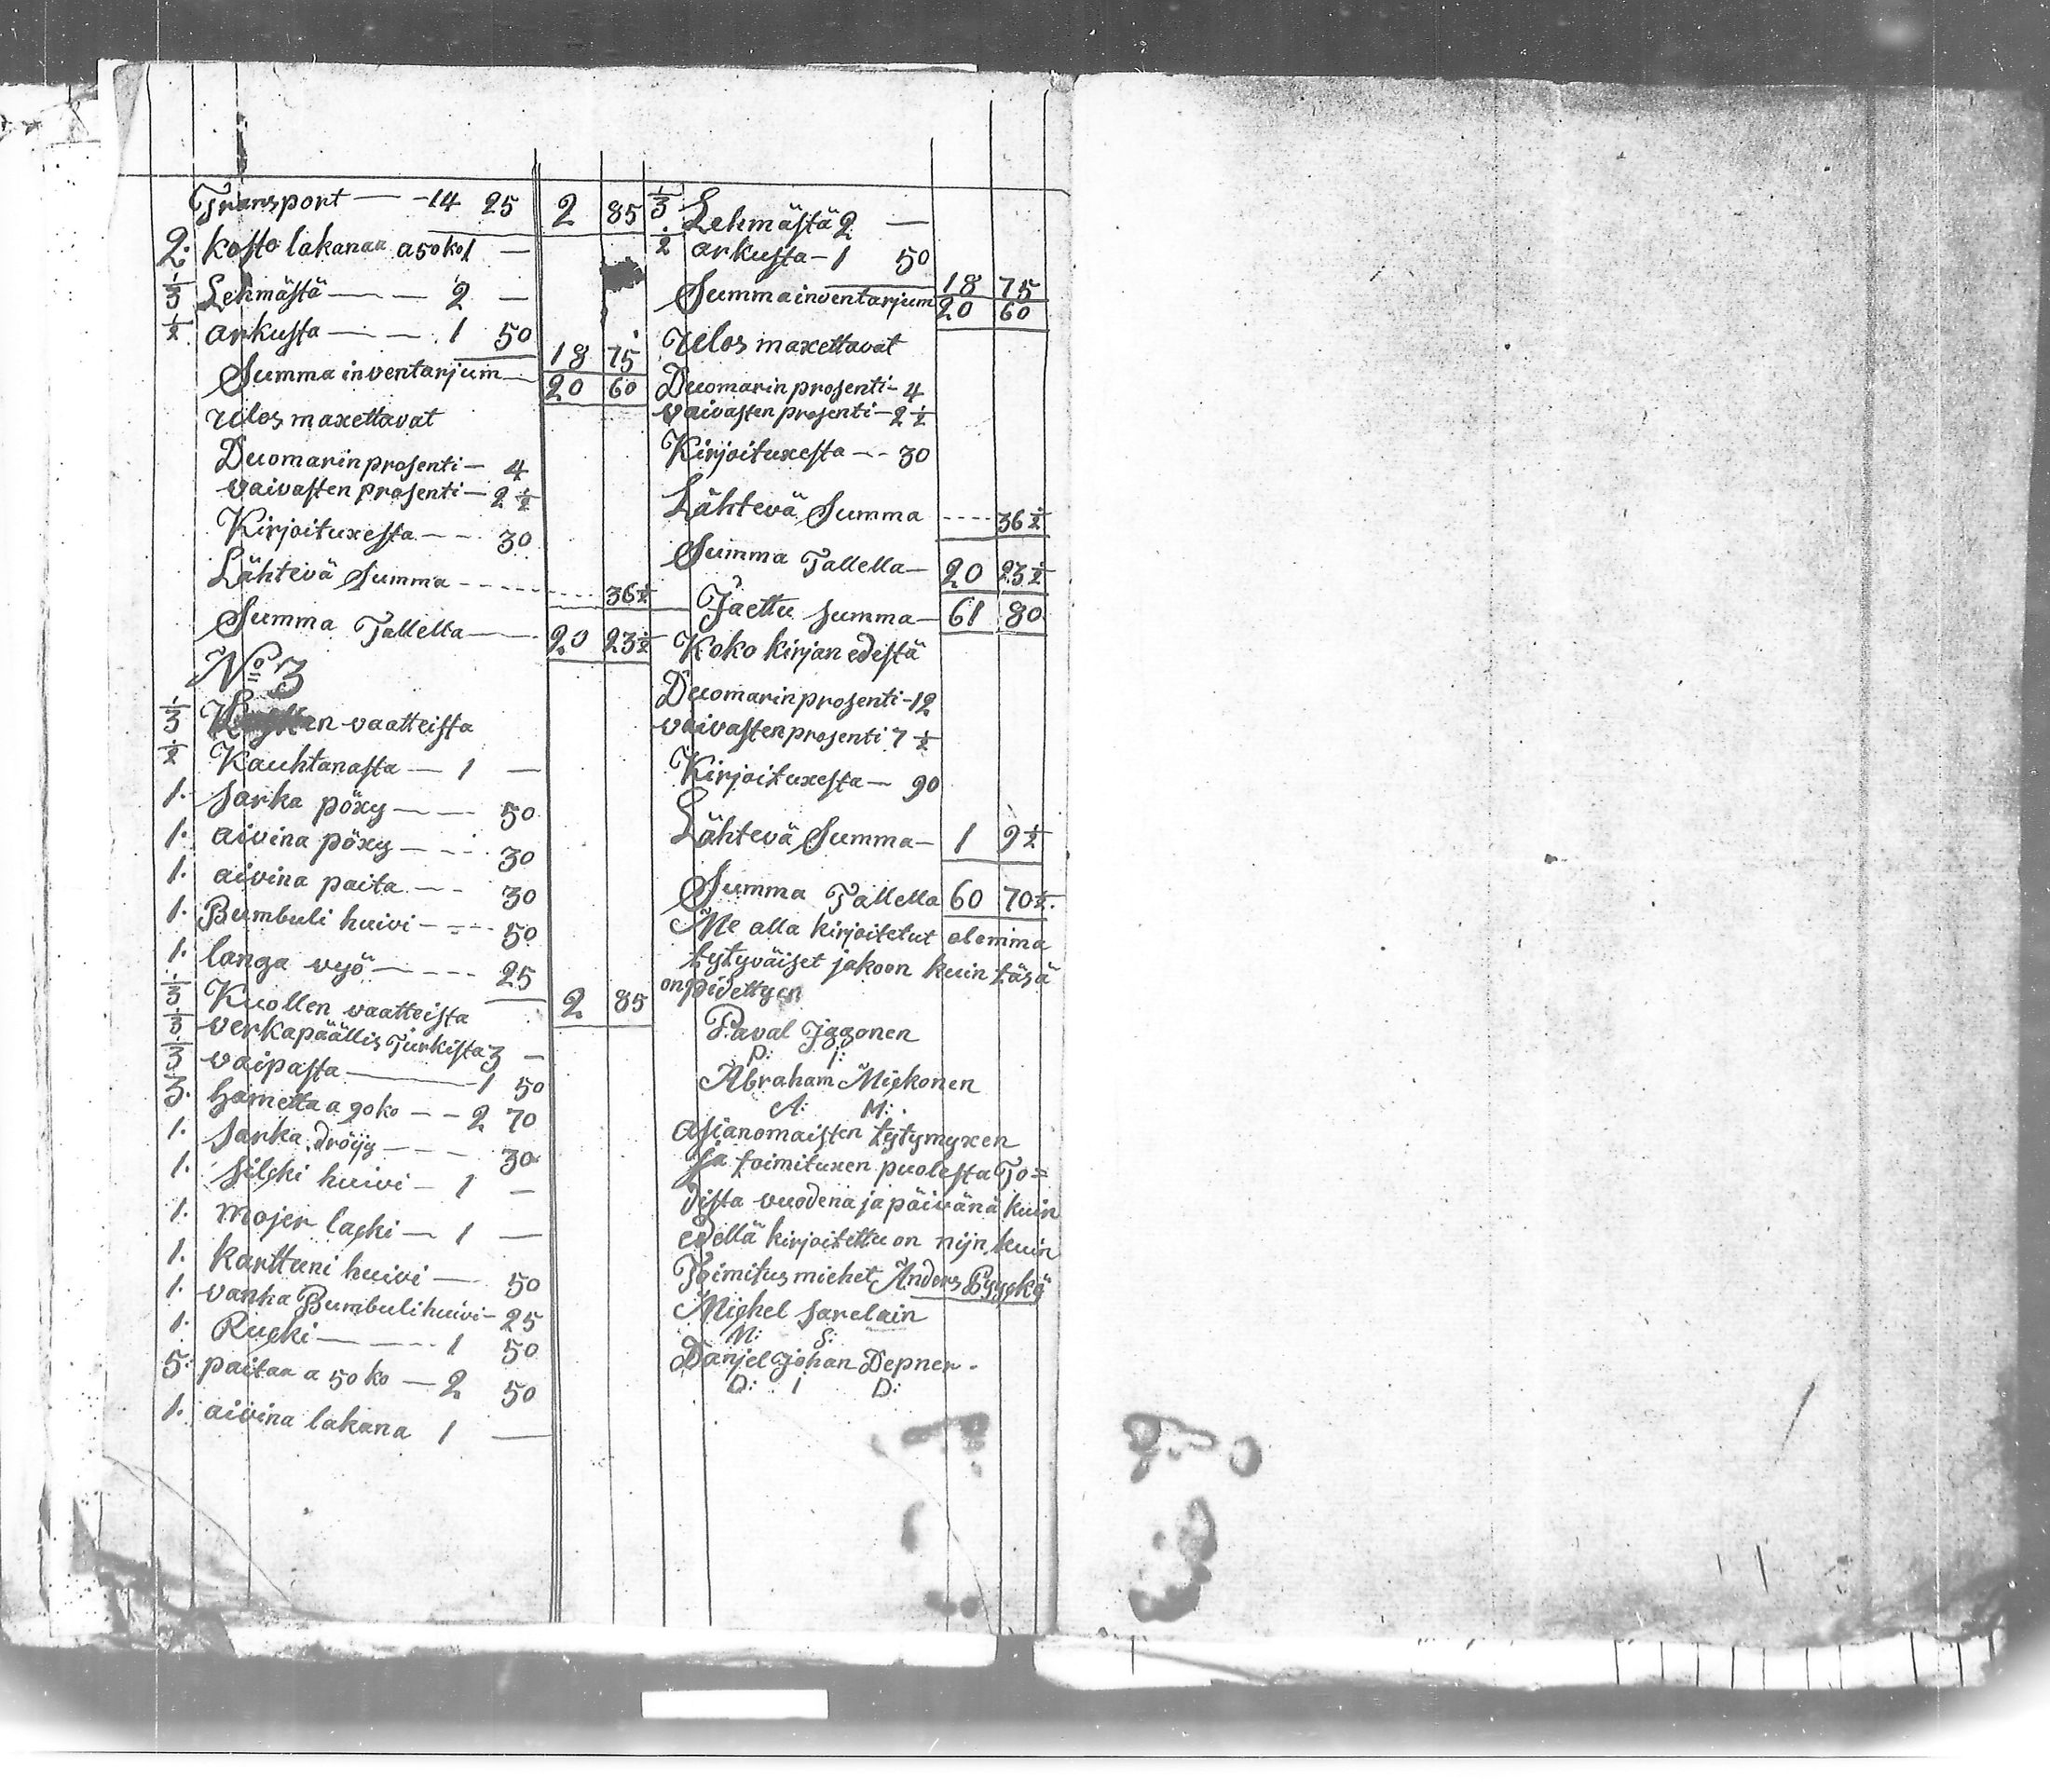 Transport — - 14 25 2 85
2. kosto lakanaa a 50 ko 1 —
1/3 Lehmästä — — 2 —
1/2 arkusta — — 1 50
18 75
Summa inventarjum — 20 60
Ulos maxettavat
Duomarin prosenti — 4
vaivasten prosenti — 2 1/2
Kirjoituxesta — — 30
Lähtevä Summa - - - - 36 1/2
Summa Tallella — 20 23 1/2
No 3
1/3 vaatteista
1/2 Kauhtanasta — 1 —
1. sarka pöxy — — 50
1. aivina pöxy — - 30
1. aivina paita — - 30
1. Bumbuli huivi - - - 50
1. langa vyö — - - - 25
2 85
1/3 Kuollen vaatteista
1/3 verkapäällis Turkista 3 —
1/3 vaipasta — 1 50
3. hametta a 90 ko — — 2 70
1. sarka dröijy — - - 30
1. silcki huivi — 1 —
1. mojer lacki — 1 —
1. karttuni huivi — 50
1. vanha Bumbuli huivi - 25
1. Rucki — - - 1 50
5. paitaa a 50 ko — 2 50
1. aivina lakana 1 —
1/3 Lehmästä 2 —
1/2 arkusta — 1 50
18 75
Summa inventarjum 20 60
Ulos maxettavat
Duomarin prosenti — 4
vaivasten prosenti — 2 1/2
Kirjoituxesta — - 30
Lähtevä Summa - - - - 36 1/2
Summa Tallella — 20 23 1/2
Jaettu summa — 61 80
Koko kirjan edestä
Duomarin prosenti - 12
vaivasten prosenti 7 1/2
Kirjoituxesta — 90
Lähtevä Summa — 1 9 1/2
Summa Tallella 60 70 1/2.
Me alla kirjoitetut olemma
tytyväiset jakoon kuin täsä
on pidettyen
Paval Iggonen
P: I:
Abraham Mickonen
A: M:
asianomaisten tytymyxen
ja toimituxen puolesta To=
dista vuodena ja päivänä kuin
edellä kirjoitettu on nijn kuin
Toimitus miehet Anders Pyyckö
Michel Sarelain
M: S:
Danjel Johan Depner.
D: I D: